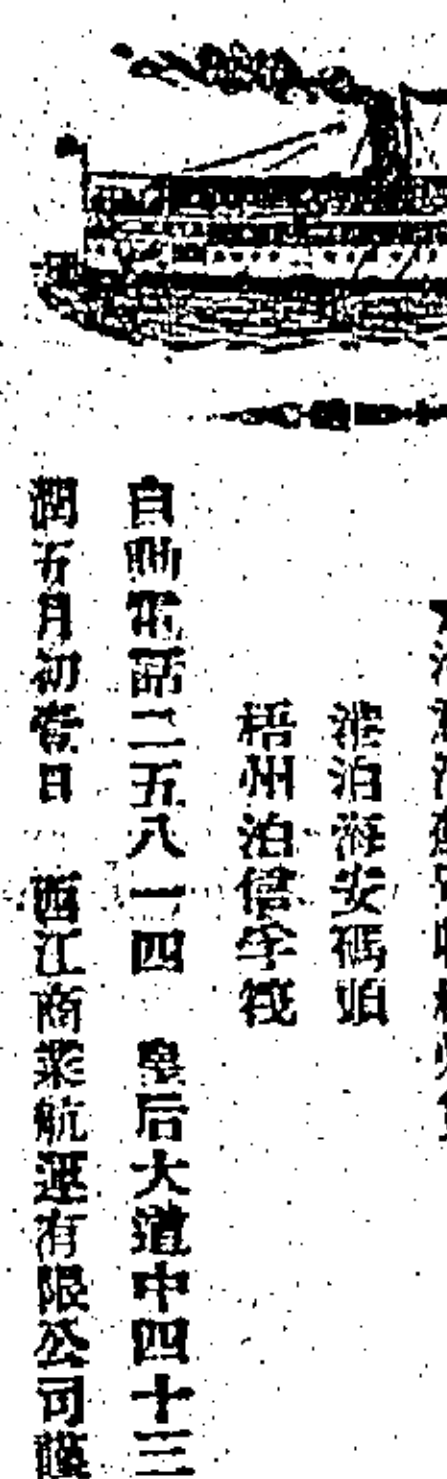 港泊海安碼頭
梧州泊信孚筏
自動電話二五八一四　皇后大道中四十三
潤五月初壹日　西江商業航運有限公司謹